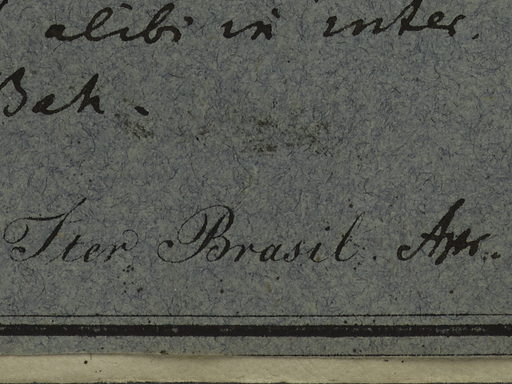 alibi in inter.
Bah.
Iter Brasil.